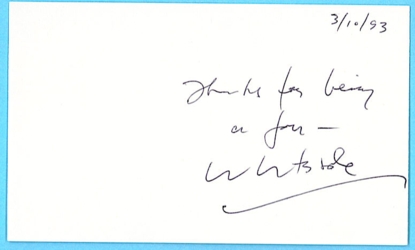 3/10/93
Thanks for being
a fan —